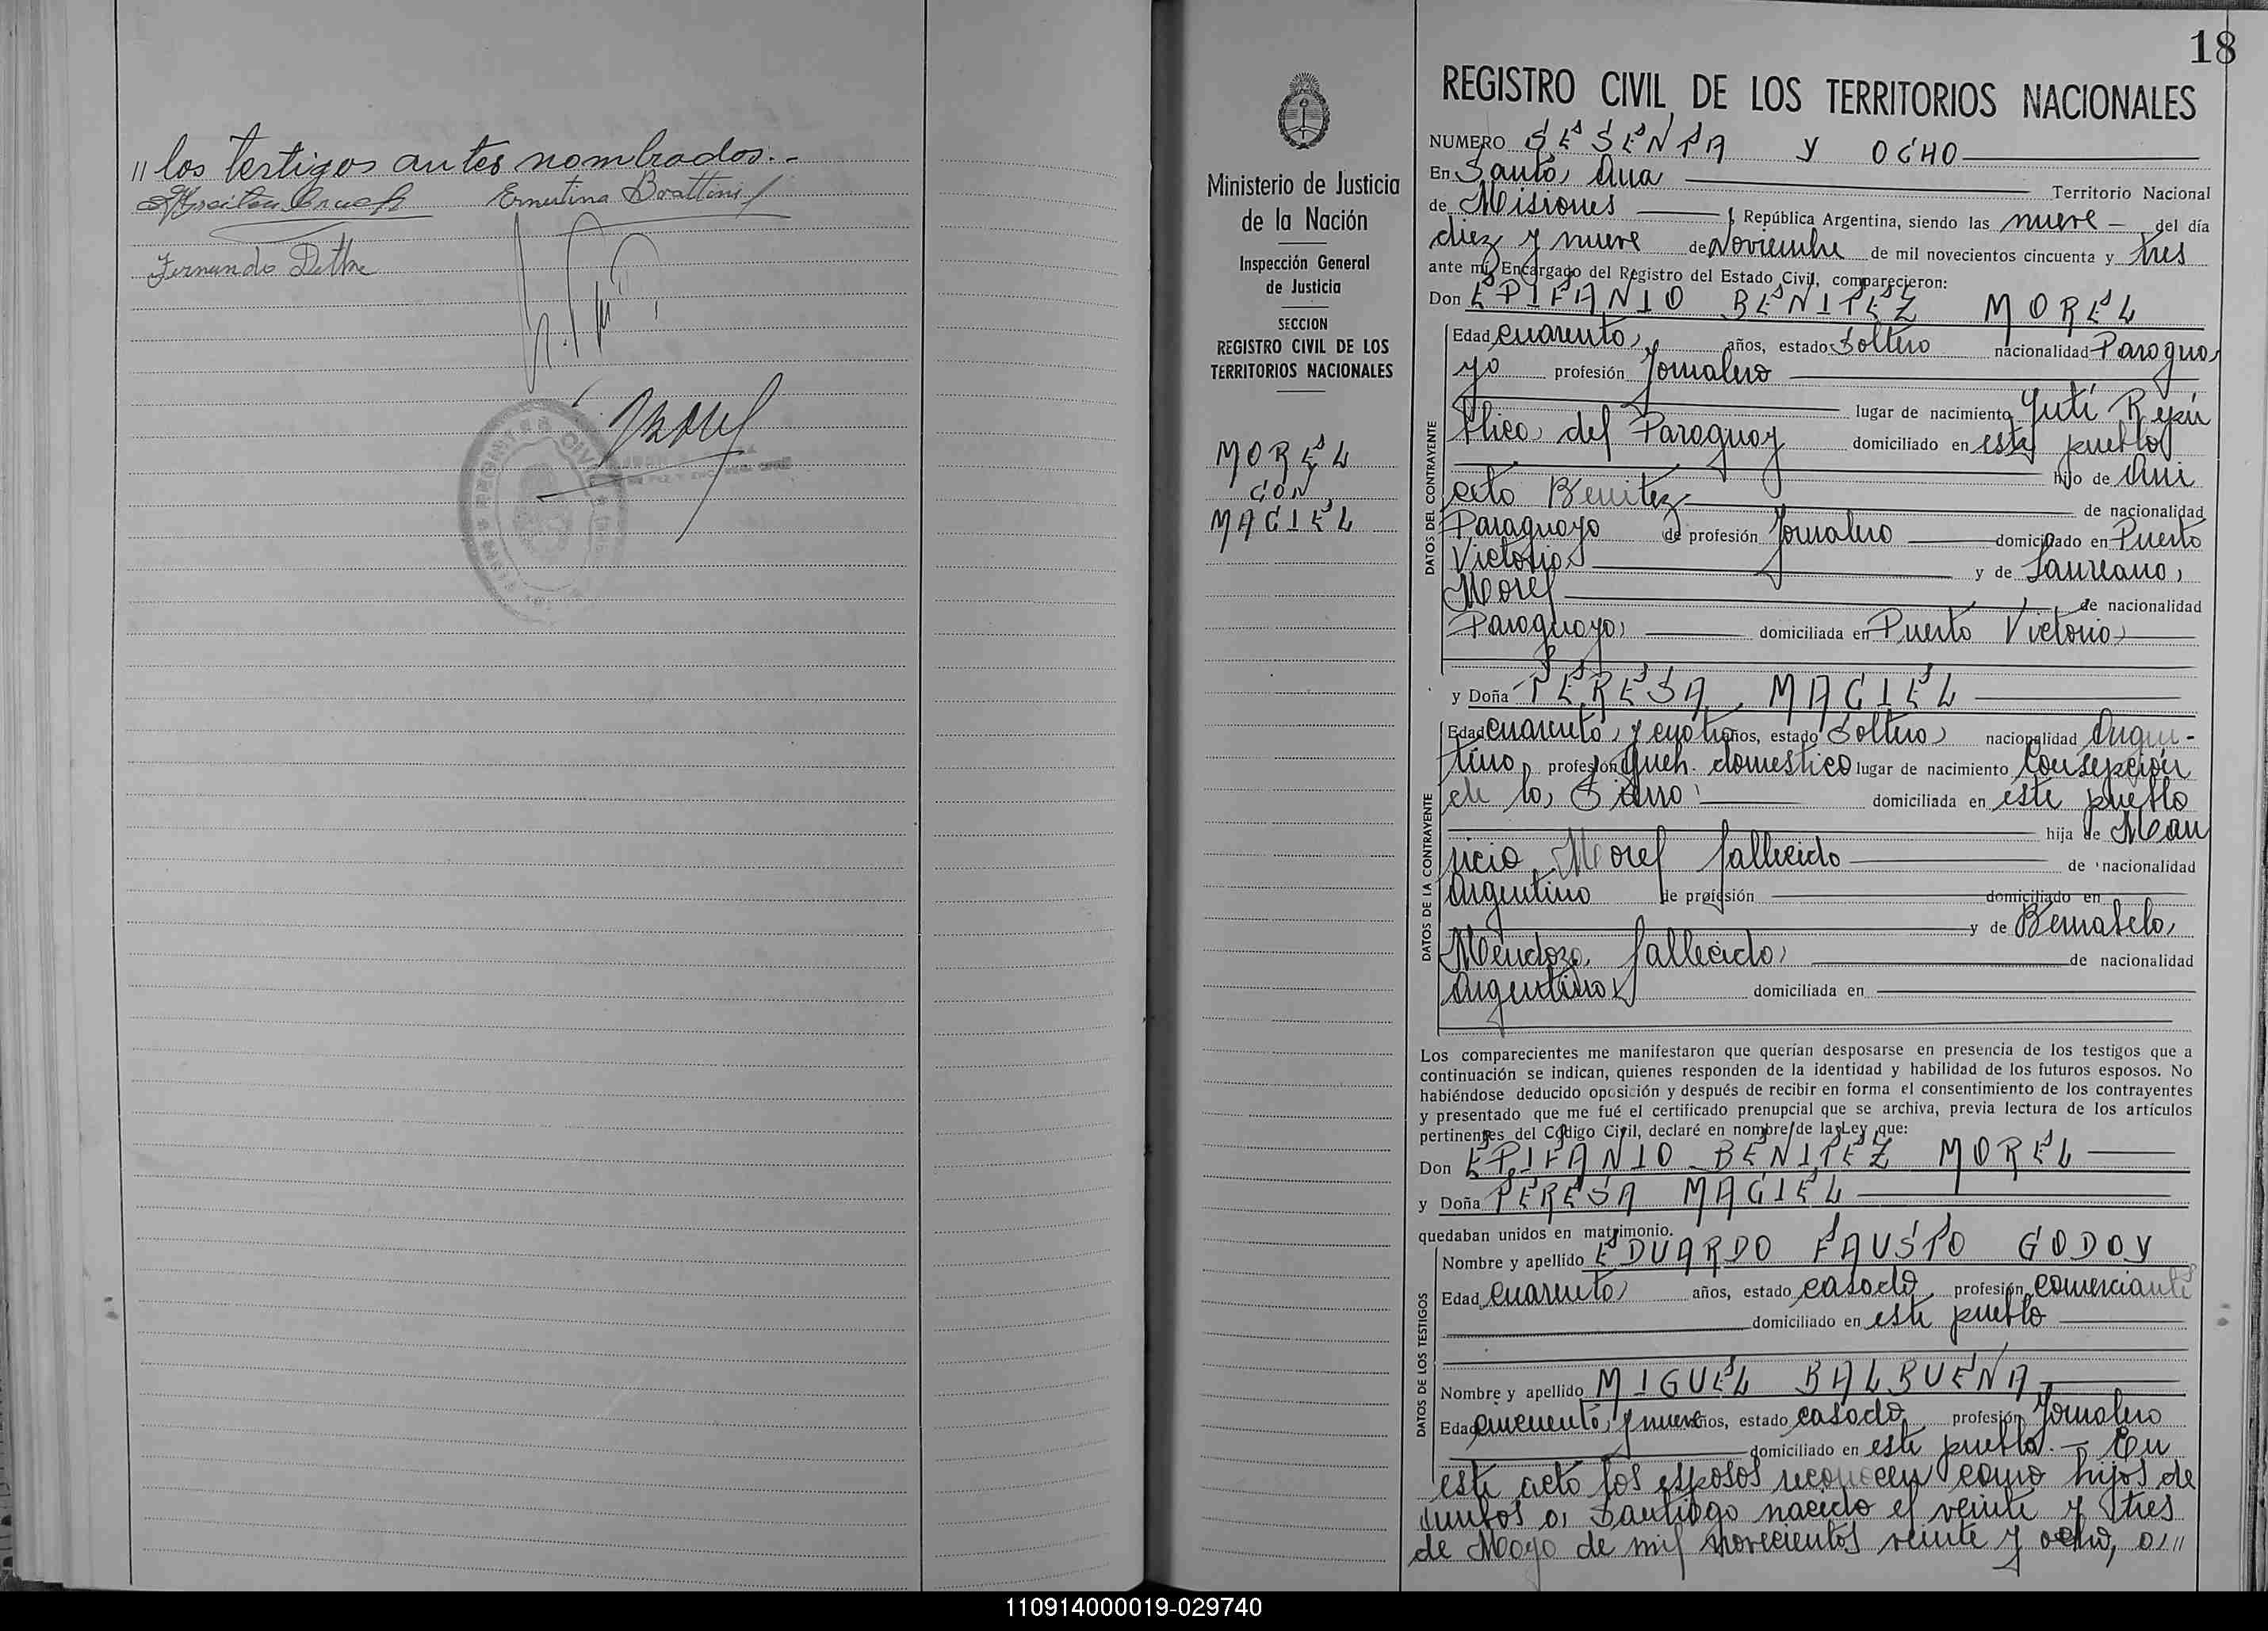 " los testigos antes nombrados.-
Ernestina Boattini
Fernando
18
Ministerio de Justicia
de la Nación
Inspección General
de Justicia
SECCION
REGISTRO CIVIL DE LOS
TERRITORIOS NACIONALES
MOREL
CON
MACIEL
REGISTRO CIVIL DE LOS TERRITORIOS NACIONALES
NUMERO SESENTA Y OCHO
En Santa Ana Territorio Nacional
de Misiones República Argentina, siendo las nueve del día
diez y nueve de Noviembre de mil novecientos cincuenta y tres
ante mí, Encargado del Registro del Estado Civil, comparecieron:
Don EPIFANIO BENITEZ MOREL
DATOS DEL CONTRAYENTE
Edad cuarenta años, estado soltero nacionalidad Paragua
yo profesión Jornalero
lugar de nacimiento Yutí Repú
blica del Paraguay domiciliado en este pueblo
hijo de Ani
ceto Benitez de nacionalidad
Paraguayo de profesión Jornalero domiciliado en Puerto
Victoria y de Laureana
Morel de nacionalidad
Paraguaya domiciliada en Puerto Victoria
y Doña TERESA MACIEL
DATOS DE LA CONTRAYENTE
Edad cuarenta y cuatro años, estado soltera nacionalidad Argen-
tina profesión Queh. domestico lugar de nacimiento Consepción
de la Sierra domiciliada en este pueblo
hija de Mau
ricio Morel fallecido de nacionalidad
Argentino de profesión domiciliado en
y de Bernabela
Mendoza fallecida de nacionalidad
Argentina domiciliada en
Los comparecientes me manifestaron que querían desposarse en presencia de los testigos que a
continuación se indican, quienes responden de la identidad y habilidad de los futuros esposos. No
habiéndose deducido oposición y después de recibir en forma el consentimiento de los contrayentes
y presentado que me fué el certificado prenupcial que se archiva, previa lectura de los artículos
pertinentes del Código Civil, declaré en nombre de la Ley que:
Don EPIFANIO BENITEZ MOREL
y Doña TERESA MACIEL
quedaban unidos en matrimonio.
DATOS DE LOS TESTIGOS
Nombre y apellido EDUARDO FAUSTO GODOY
Edad cuarenta años, estado casado profesión comerciante
domiciliado en este pueblo
Nombre y apellido MIGUEL BALBUENA
Edad cincuenta y nueve años, estado casado profesión Jornalero
domiciliado en este pueblo.- En
este acto los esposos reconocen como hijos de
ambos a Santiago nacido el veinte y tres
de Mayo de mil novecientos veinte y ocho, a"
110914000019-029740